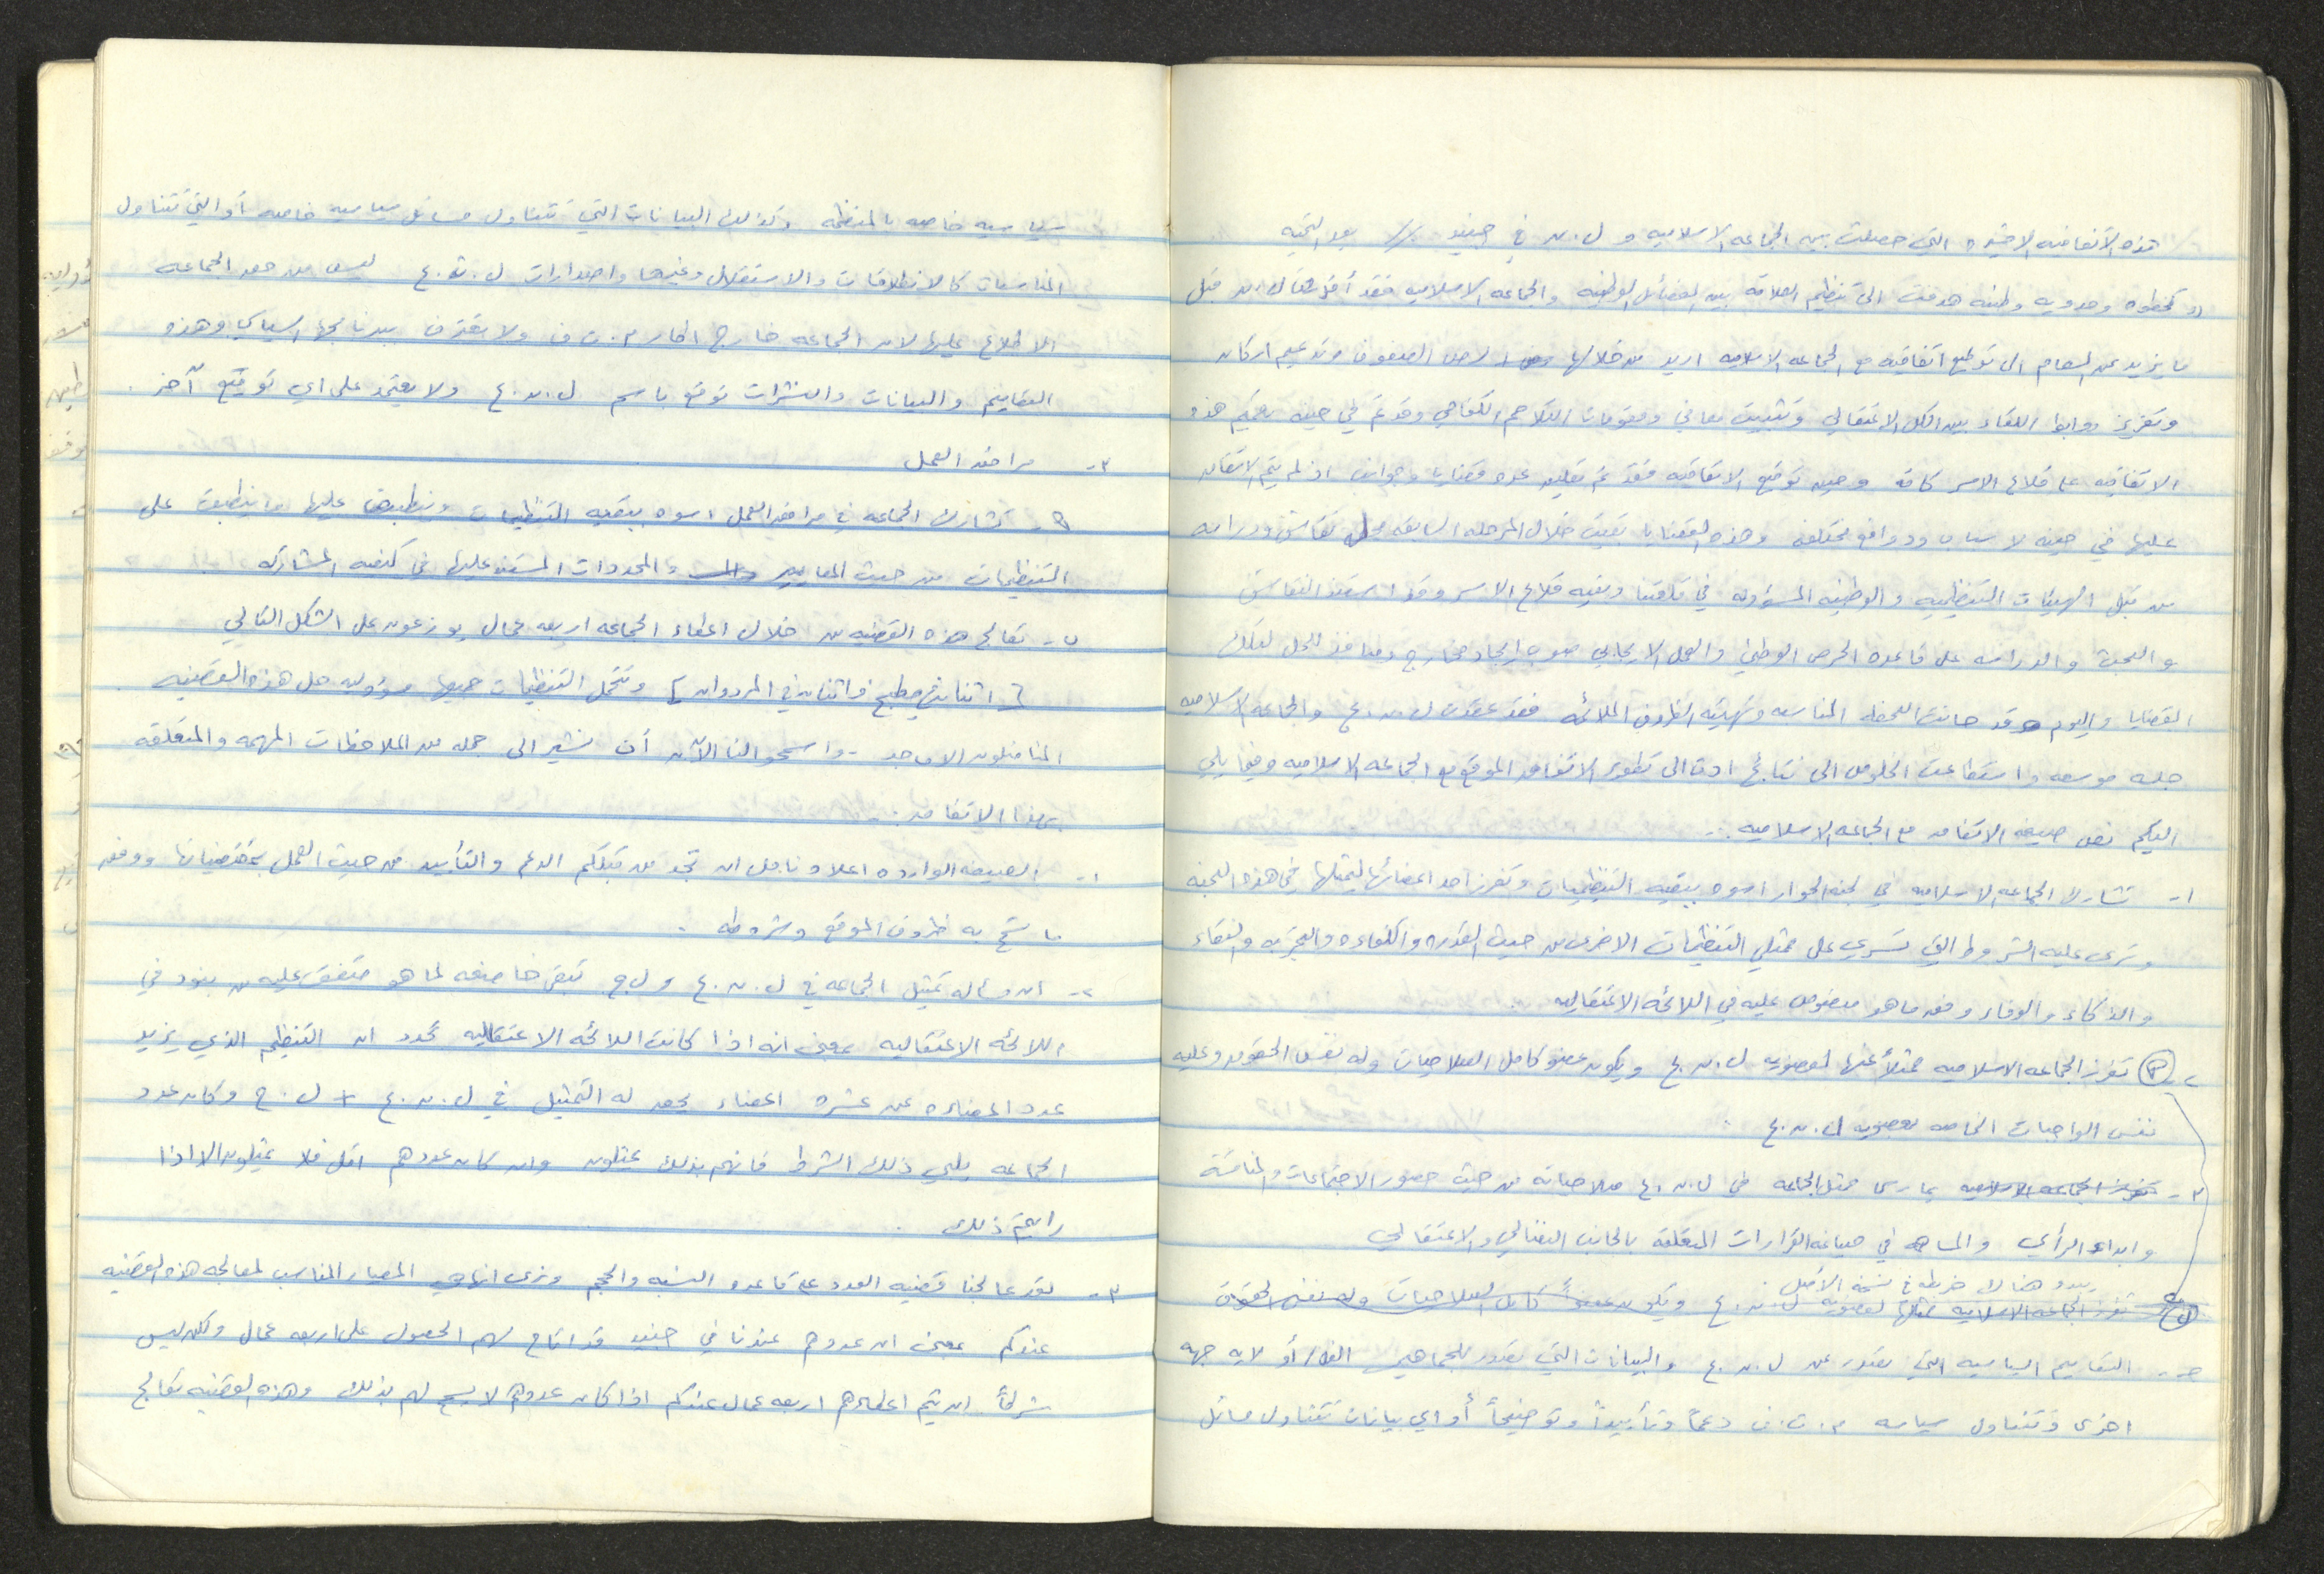 هذه الاتفاقيه الاخيره التي حصلت بين الجماعه الاسلاميه و ل.ن في جنيد // بعد التحيه
كخطوه وحدويه وطنيه هدفت الى تنظيم العلاقة بين الفصائل الوطنيه والجماعه الاسلاميه فقد أقر هنالك من قبل
ما يزيد عن العام الى توقيع اتفاقيه مع الجماعه الاسلاميه اريد من خلالها رص الصفوف وتدعيم اركان
وتعزيز روابط اللقاء بين الكل الاعتقالي وتثبيت معاني ومقومات التلاحم الكفاحي وقد تم في حينه تعميم هذه
الاتفاقيه على قلاع الاسر كافة وحين توقيع الاتفاقيه فقد تم تعليق عده قضايا وجوانب اذ لم يتم الاتفاق
عليها في حينه لاسباب ودوافع مختلفه وهذه القضايا بقيت خلال المرحله السابقه محل نقاش ودراسه
من قبل الهيئات التنظيميه والوطنيه المسؤوله في قلعتنا وبقيه قلاع الاسر وقد استند النقاش
والبحث والدراسه على قاعده الحرص الوطني والعمل الايجابي صوب ايجاد مخارج ومنافذ للحل لتلك
القضايا واليوم وقد حانت اللحظه المناسبه وتهيئه الظروف الملائمه فقد عقدت ل.ن.ع والجماعه الاسلاميه
جلسه موسعه واستطاعت الخلوص الى نتائج ادت الى تطوير الاتفاق الموقع مع الجماعه الاسلاميه وفيما يلي
اليكم نص صيغه الاتفاق مع الجماعه الاسلاميه :-
١- تشارك الجماعه الاسلاميه في لجنه الحوار اسوه ببقيه التنظيمات وتفرز احد اعضائها ليمثلها في هذه اللجنه
وتسري عليه الشروط التي تسري على ممثلي التنظيمات الاخرى من حيث القدره والكفاءه والتجربه والنقاء
والذكاء والوفاء وفق ما هو منصوص عليه في اللائحه الاعتقاليه .
٢- (أ) تفرز الجماعه الاسلاميه ممثلاً عنها لعضويه ل.ن.ع ويكون عضو كامل الصلاحيات وله نفس الحقوق وعليه
نفس الواجبات الخاصه بعضويه ل.ن.ع .
٣- تفرز الجماعه الاسلاميه يمارس ممثل الجماعه في ل.ن.ع صلاحياته من حيث حضور الاجتماعات والمناقشة
وابداء الرأي والمساهمه في صياغه القرارات المتعلقة بالجانب النضالي والاعتقالي
يبدو هنالك خربطه في نسخة الاصل .
تفرز الجماعه الاسلاميه ممثلها لعضويه ل.ن.ع ويكون عضواً كامل الصلاحيات وله نفس الحقوق
ج- التعاميم السياسيه التي تصدر عن ل.ن.ع والبيانات التي تصدر للجماهير أو لايه جهه
اخرى وتتناول سياسه م.ت.ف دعماً وتأييداً وتوضيحاً أو اي بيانات تتناول مسائل
سياسيه خاصه بالمنظمه وكذلك البيانات التي تتناول مسائل سياسيه خاصه أو التي تتناول
المناسبات كالانطلاقات والاستقلال وغيرها واصدارات ل.ن.ع ليس من حق الجماعه
الاطلاع عليها لان الجماعه خارج اطار م.ت.ف ولا تعترف ببرنامجها السياسي وهذه
التعاميم والبيانات والنشرات توقع باسم ل.ن.ع ولا يعتمد على اي توقيع آخر .
٣- مرافق العمل
أ- تشارك الجماعه في مرافق العمل اسوه ببقيه التنظيمات وينطبق عليها ما ينطبق على
التنظيمات من حيث المعايير والمحددات المستند عليها في كيفيه المشاركه .
ب- تعالج هذه القضيه من خلال اعطاء الجماعه اربعه عمال يوزعون على الشكل التالي
[ اثنان في مطبخ واثنان في المردوان ] وتتحمل التنظيمات جميعها مسؤوليه حل هذه القضيه .
المناضلون الاماجد - واسمحوا لنا الآن أن نشير الى جمله من الملاحظات المهمه والمتعلقة
بهذا الاتفاق :-
١- الصيغه الوارده اعلاه نامل ان تجد من قبلكم الدعم والتأييد من حيث العمل بمقتضياتها ووفق
ما تسمح به ظروف الموقع وشروطه .
٢- ان مساله تمثيل الجماعه في ل.ن.ع و ل.ح تبقى خاضعه لما هو متفق عليه من بنود في
اللائحه الاعتقاليه بمعنى انه اذا كانت اللائحه الاعتقاليه تحدد ان التنظيم الذي يزيد
عدد اعضاءه عن عشره اعضاء يحق له التمثيل في ل.ن.ع + ل.ح وكان عدد
الجماعه يلبي ذلك الشرط فانهم بذلك يمثلون وان كان عددهم اقل فلا يمثلون الا اذا
رايتم ذلك .
٣- لقد عالجنا قضيه العدد على قاعده النسبه والحجم ونرى انها هي المعيار المناسب لمعالجه هذه القضيه
عندكم بمعنى ان عددهم عندنا في جنيد قد اتاح لهم الحصول على اربعه عمال ولكن ليس
شرطاً ان يتم اعطاءهم اربعه عمال عندكم اذا كان عددهم لا يسمح لهم بذلك وهذه القضيه تعالج